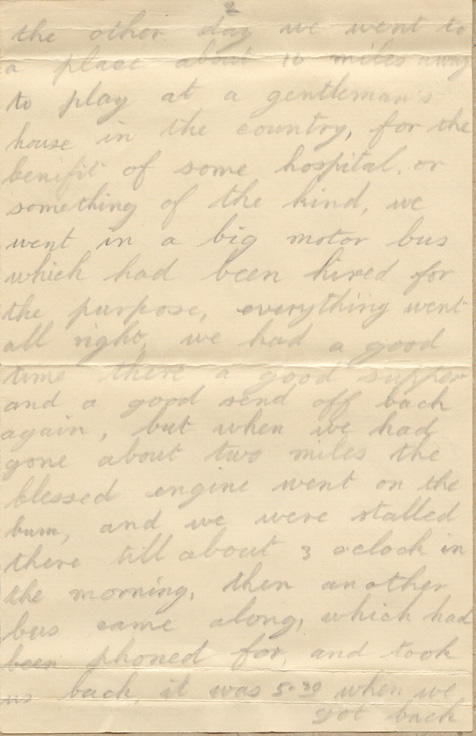 2
the other day we went to
a place about 10 miles away
to play at a gentleman's
house in the country, for the
benifit of some hospital, or
something of the kind, we
went in a big motor bus
which had been hired for
the purpose, everything went
all right, we had a good
time there a good supper
and a good send off back
again, but when we had
gone about two miles the
blessed engine went on the
bum, and we were stalled
there till about 3 oclock in
the morning, then another
bus came along, which had
been phoned for, and took
us back, it was 5.30 when we
got back